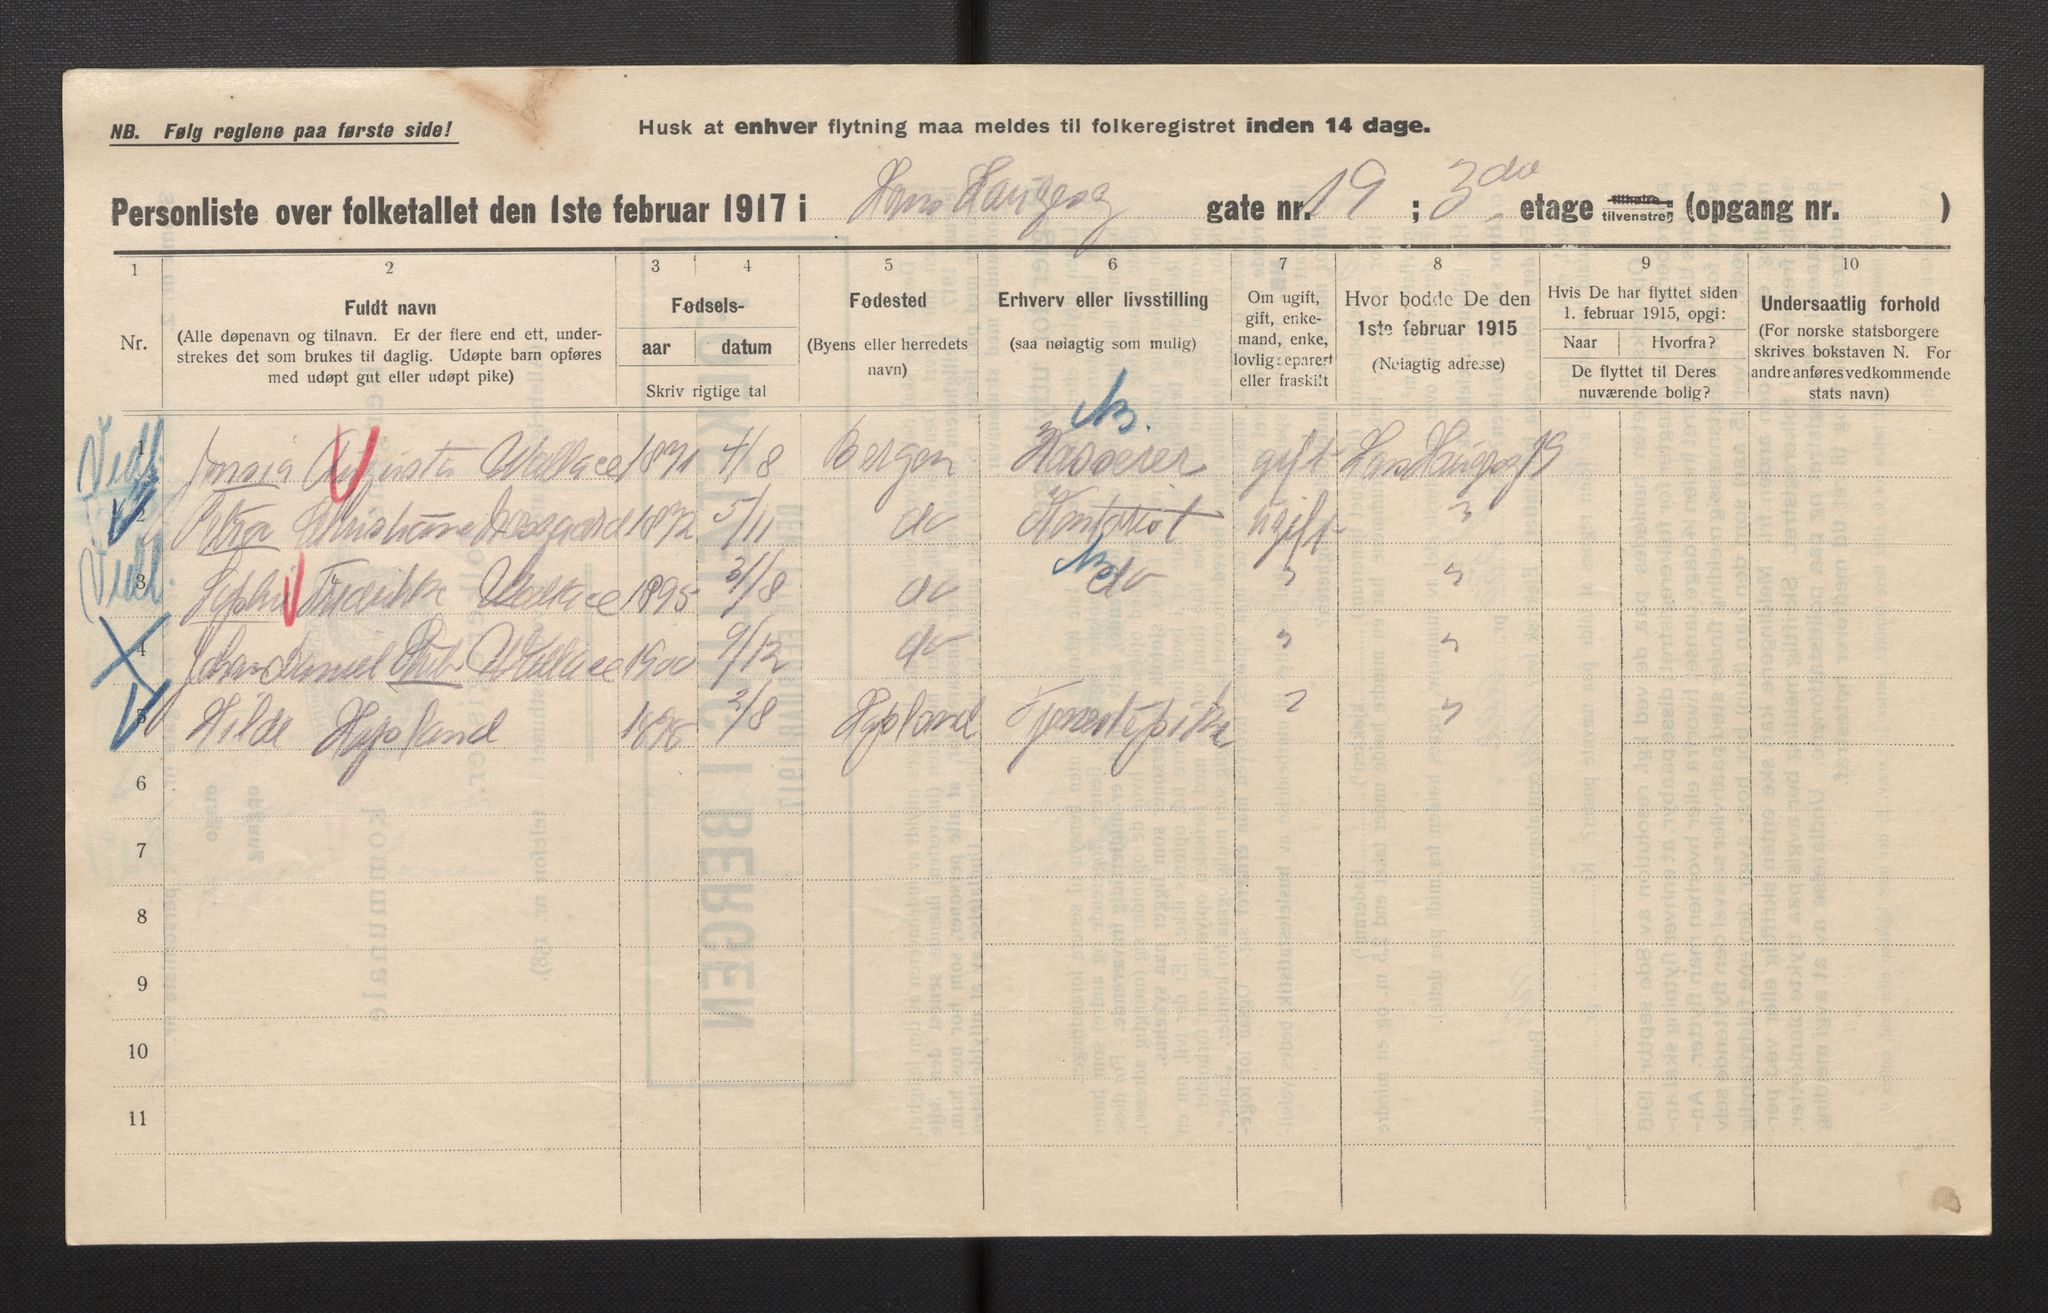 NB. Følg reglene paa første side!
Husk at enhver flytning maa meldes til folkeregistret inden 14 dage.
Personliste over folketallet den 1ste februar 1917 i Hans Haugesg gate nr. 19 ; 3de etage tilhøire, tilvenstre, (opgang nr. )
1 2 3 4 5 6 7 8 9 10
Nr.
Fuldt navn
(Alle døpenavn og tilnavn. Er der flere end ett, under-
strekes det som brukes til daglig. Udøpte barn opføres
med udøpt gut eller udøpt pike)
Fødsels-
aar datum
Skriv rigtige tal
Fødested
(Byens eller herredets
navn)
Erhverv eller livsstilling
(saa nøiagtig som mulig)
Om ugift,
gift, enke-
mand, enke,
lovlig separert
eller fraskilt
Hvor bodde De den
1ste februar 1915
(Nøiagtig adresse)
Hvis De har flyttet siden
1. februar 1915, opgi:
Naar Hvorfra?
De flyttet til Deres
nuværende bolig?
Undersaatlig forhold
(For norske statsborgere
skrives bokstaven N. For
andre anføres vedkommende
stats navn)
1 Augusta Wallace 1871 4/8 Bergen Kasserer gift Hans Haugesg 19
2 Petra Christiane 1872 5/11 do Kontorist ugift "
3 Sophie Fredrikke Wallace 1895 3/8 do do " "
4 Johan Daniel Wallace 1900 9/12 do " "
5 Hilde Hypland 1898 2/8 Hypland Tjenestepike " "
6
7
8
9
10
11